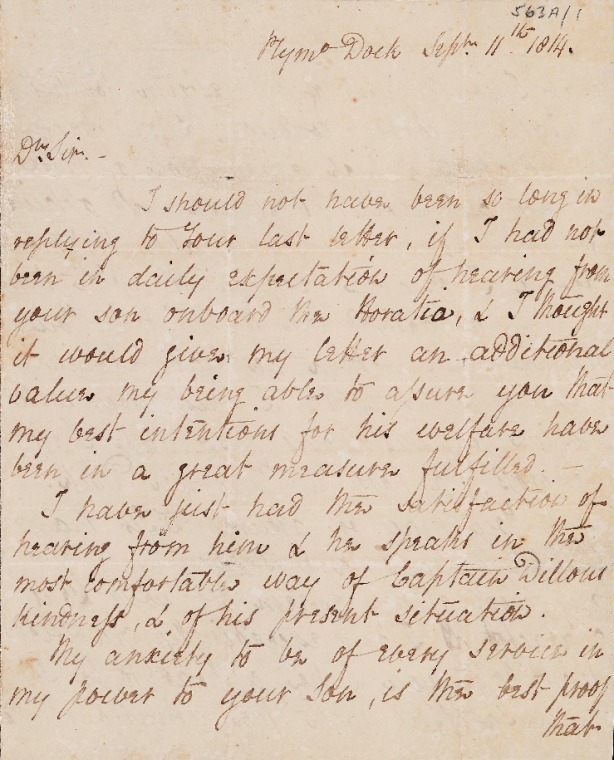 563A/1
Plymo Dock Septr. 11th. 1814.
Dr. Sir. -
I should not have been so long in
replying to Your last letter, if I had not
been in daily expectation of hearing from
your son onboard the Horatio, & I thought
it would give my letter an additional
value my being able to assure you that
my best intentions for his welfare have
been in a great measure fulfilled. -
I have just had the satisfaction of
hearing from him & he speaks in the
most comfortable way of Captain Dillons
kindness, & of his present situation.
My anxiety to be of every service in
my power to your Son, is the best proof
that